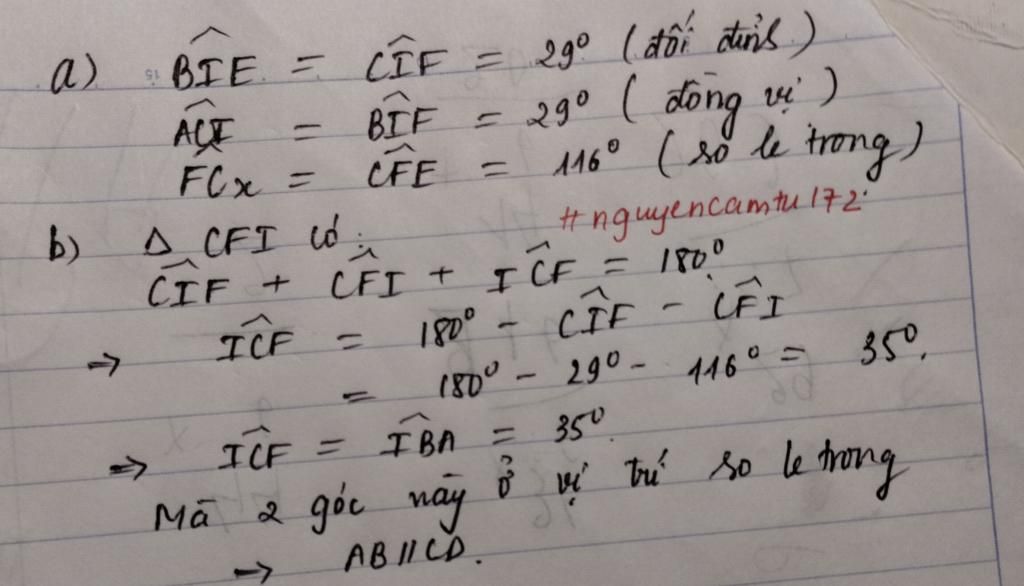 a) BIE^ = CIF^ = 29° (đối đỉnh)
ACI^ = BIF^ = 29° (đồng vị)
FCx^ = CFE^ = 116° (so le trong)
#nguyencamtu172
b) Δ CFI có:
CIF^ + CFI^ + ICF^ = 180°
→ ICF^ = 180° - CIF^ - CFI^
= 180° - 29° - 116° = 35°.
⇒ ICF^ = IBA^ = 35°.
Mà 2 góc này ở vị trí so le trong
→ AB // CD.